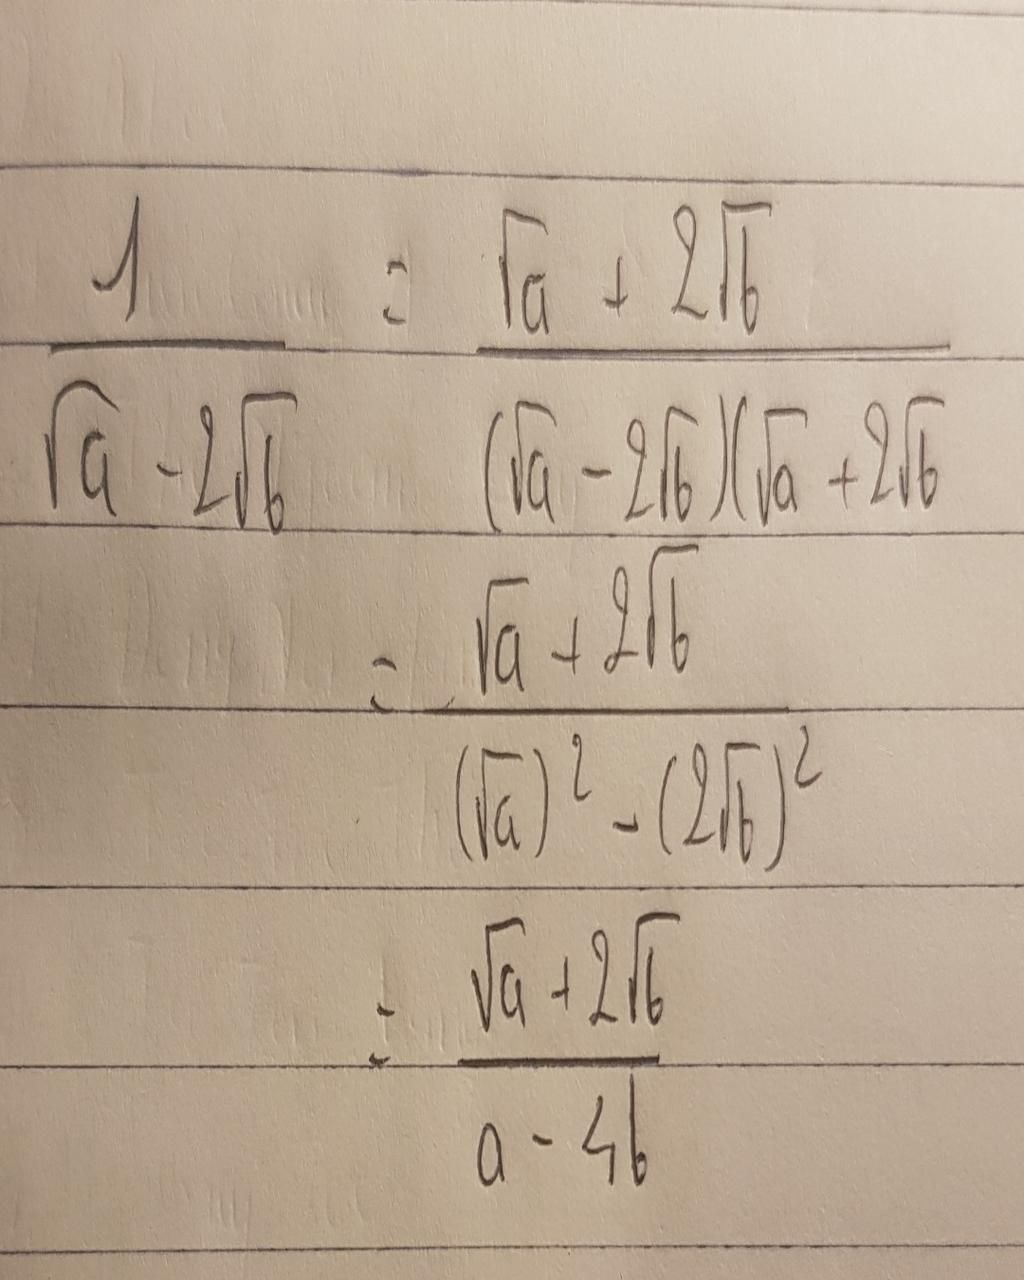 1/(√a - 2√b) = (√a + 2√b)/((√a - 2√b)(√a + 2√b
= (√a + 2√b)/((√a)² - (2√b)²)
= (√a + 2√b)/(a - 4b)